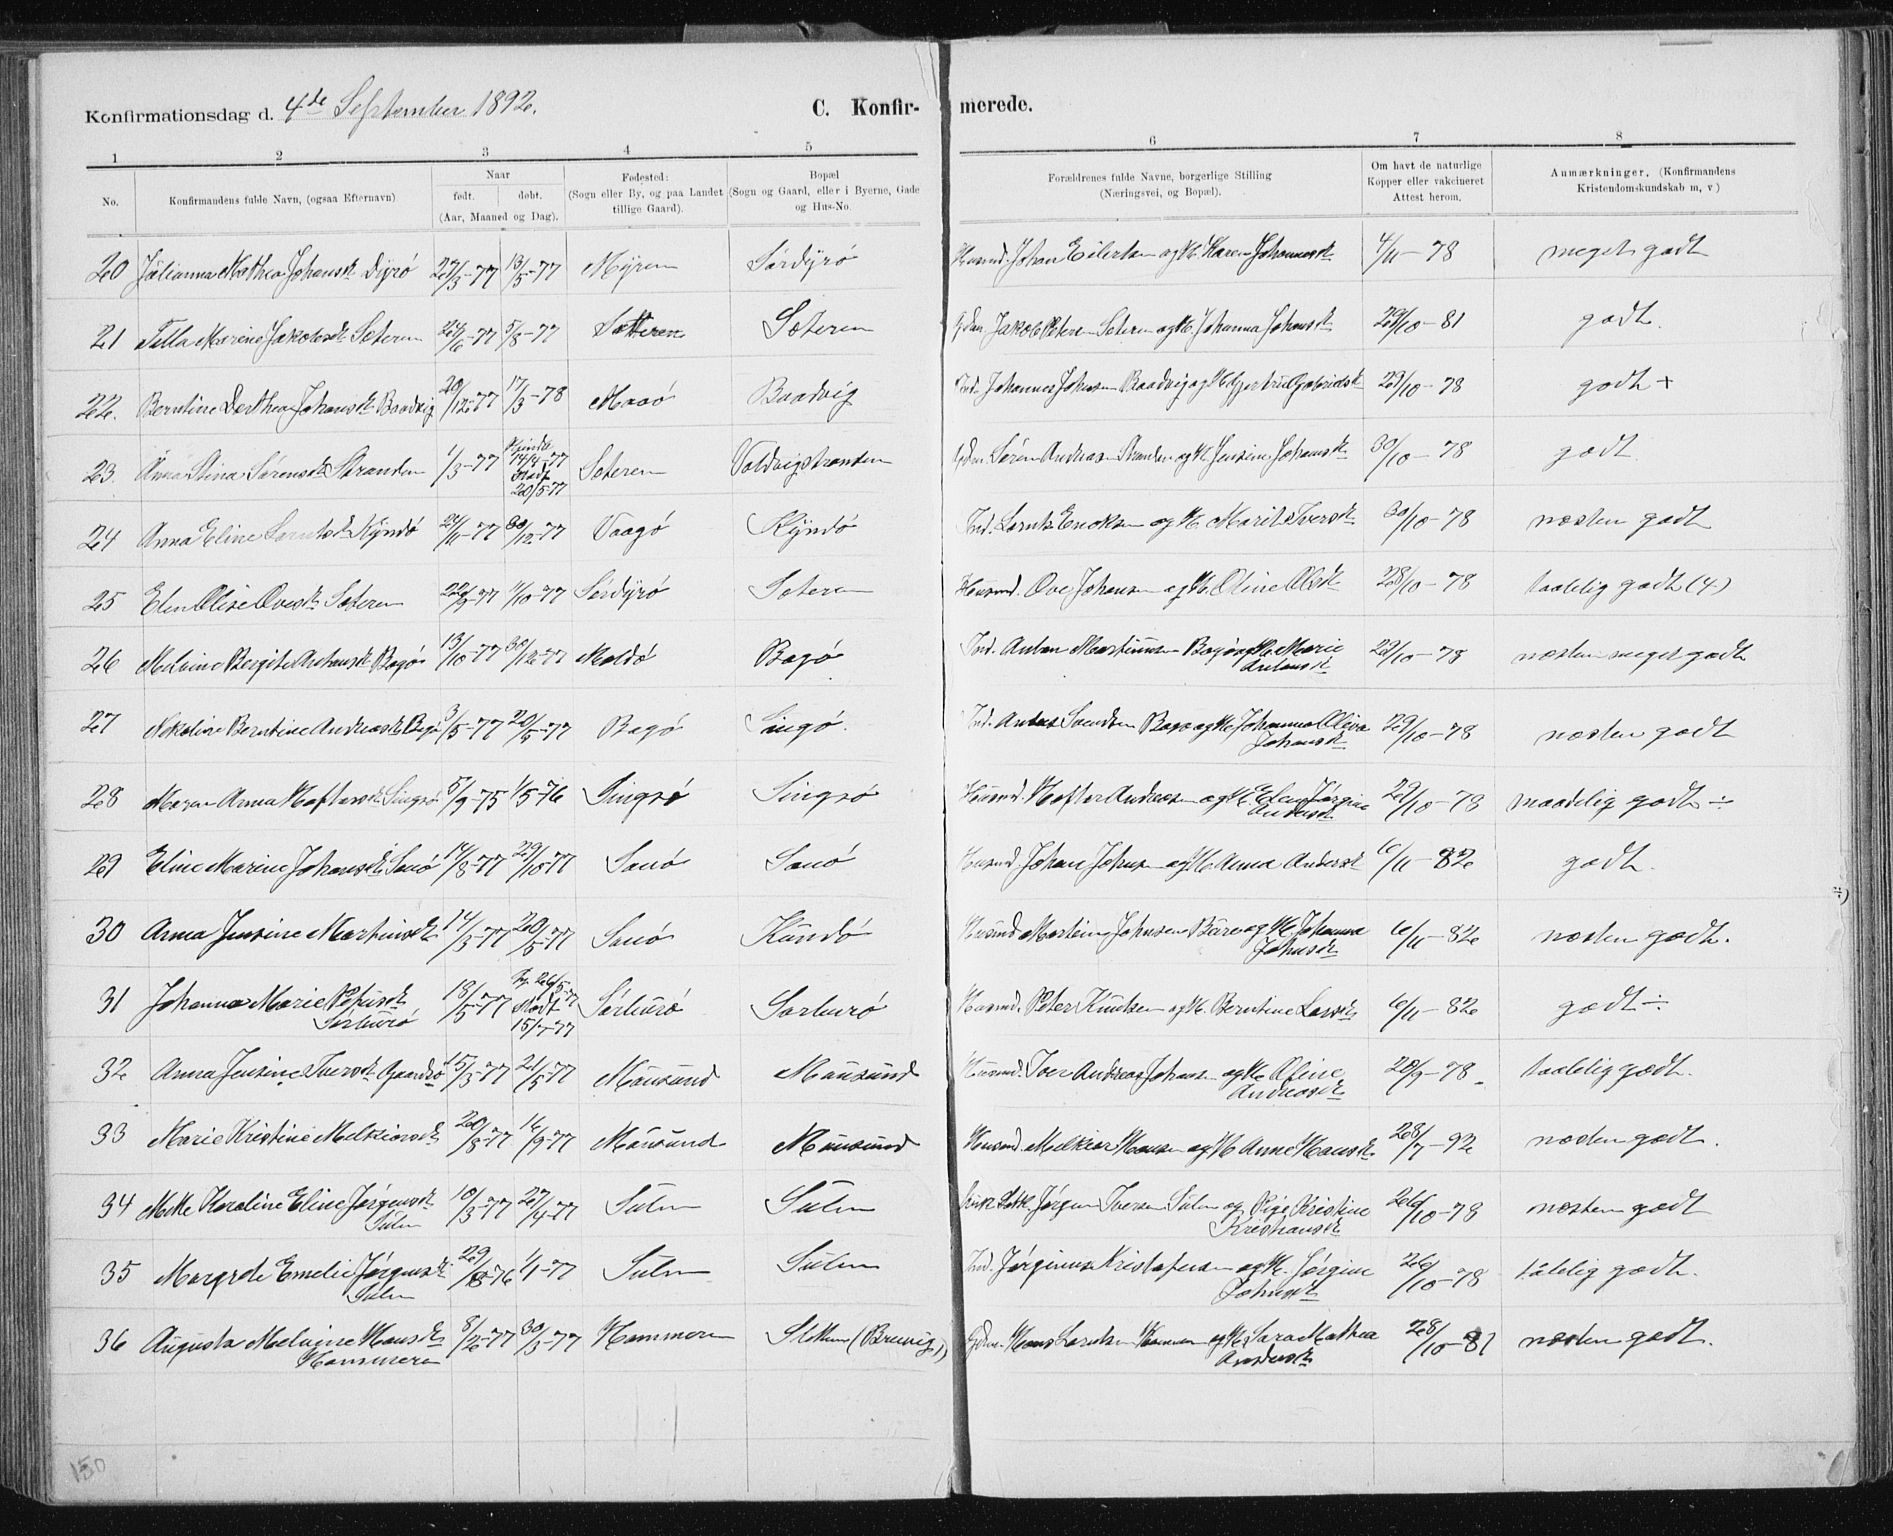 Konfirmationsdag d. 4de September 1892.
C. Konfir-merede.
1 2 3 4 5 6 7 8
No.
Konfirmandens fulde Navn, (ogsaa Efternavn)
Naar
født. døbt.
(Aar, Maaned og Dag).
Fødested:
(Sogn eller By, og paa Landet
tillige Gaard).
Bopæl
(Sogn og Gaard, eller i Byerne, Gade
og Hus-No.
Forældrenes fulde Navne, borgerlige Stilling
(Næringsvei, og Bopæl).
Om havt de naturlige
Kopper eller vakcineret
Attest herom.
Anmærkninger. (Konfirmandens
Kristendomskundskab m, v)
20 Julianna Mathea Johansdt Dyrø 27/3-77 13/5-77 Myren Sørdyrø Husmd. Johan Eilertsen og H. Karen Johannesdt 4/11-78 meget godt
21 Marine Jakobsdt Seteren 24/6-77 5/8-77 Setteren Seteren Gdm. Jakob Petersen Seteren og H. Johanna Johansdt 29/10-81 godt.
22. Berntine Dorthea Johansdt Baadvig 20/12-77 17/3-78 Maaø Baadvig Ind. Johannes Johnsen Baadvig og H. Gjertru Gabrielsdt 29/10-78 godt +
23. Anna Stina Sørensdt Stranden 1/3-77 Hjemdt 14/4-77 Stadf 20/5-77 Seteren Valdvigstranden Gdm. Søren Andreasen Stranden og H. Jensine Johansdt 30/10-78 godt
24 Anna Eline Lorntsdt Kyndø 24/11-77 30/12-77 Vaagø Kyndø Ind. Lornts Enoksen og H. Marit Iversdt 30/10-78 næsten godt
25 Elen Olise Ovesdt Seteren 22/9-77 11/10-77 Sørdyrø Seteren Husmd. Ove Johansen og H. Oline Olsdt 28/10-78 taalelig godt (4-)
26 Melvine Bergite Antonsdt Bogø 13/10-77 30/12-77 Moldø Bogø Ind. Anton Martinusen Bogø og H. Marie
Antonsdt 29/10-78 næsten meget godt
27 Nikoline Berntine Andreasdt Bogø 3/5-77 20/5-77 Bogø Singø. Ind. Svendsen Bogø og H. Johanna Oliva
Johansdt 29/10-78 næsten godt
28 Anna Haftorsdt Singsø 5/9-75 1/5-76 Singsø Singsø Husmd. Haftor Andreasen og H. Elen Jørgine
Andersdt 29/10-78 maadelig godt ÷
29 Eline Marine Johansdt Sanø 14/8-77 29/10-77 Sanø Sanø Husmd. Johan Johnsen og H. Anna Andersdt 6/11-82 godt.
30 Anna Jensine Martinsdt 14/3-77 20/5-77 Sanø Kundø Husmd Martin Johnsen og H. Johanna
Johnsdt 6/11-82 næsten godt.
31 Johanna Marie Petersdt
Sørburø 18/5-77 Hj. 26/5-77 Stadf 15/7-77 Sørburø Sørburø Husmd. Peter Knudsen og H. Berntine Larsdt 6/11-82 godt ÷
32 Anna Jensine Iversdt Gaardsø 15/3-77 21/5-77 Mausund Mausund Husmd. Iver Andreas Johansen og H. Oline
Andreasdt 20/9-78 taalelig godt.
33 Marie Kristine Melkiorsdt 20/8-77 16/9-77 Mausund Mausund Husmd. Melkior Hansen og H. Anne Hansdt 28/7-92 næsten godt.
34 Karoline Eline Jørgensdt
Sulen 10/3-77 27/4-77 Sulen Sulen Jørgen Iversen Sulen og Pige Kristine
Kristiansdt 26/10-78 næsten godt
35 Margrete Emelie Jørginusdt
Sulen 29/10-76 1/1-77 Sulen Sulen Ind. Jørginus Kristofersen og H. Jørgine
Johnsdt 26/10-78 tålelig godt.
36 Augusta Melvine Hansdt
Hammeren 8/2-77 30/3-77 Hammeren (Bruvig) Gdm. Hans Lorntsen Hammeren og H. Sara Mathea
Andersdt 28/10-81 næsten godt.
150